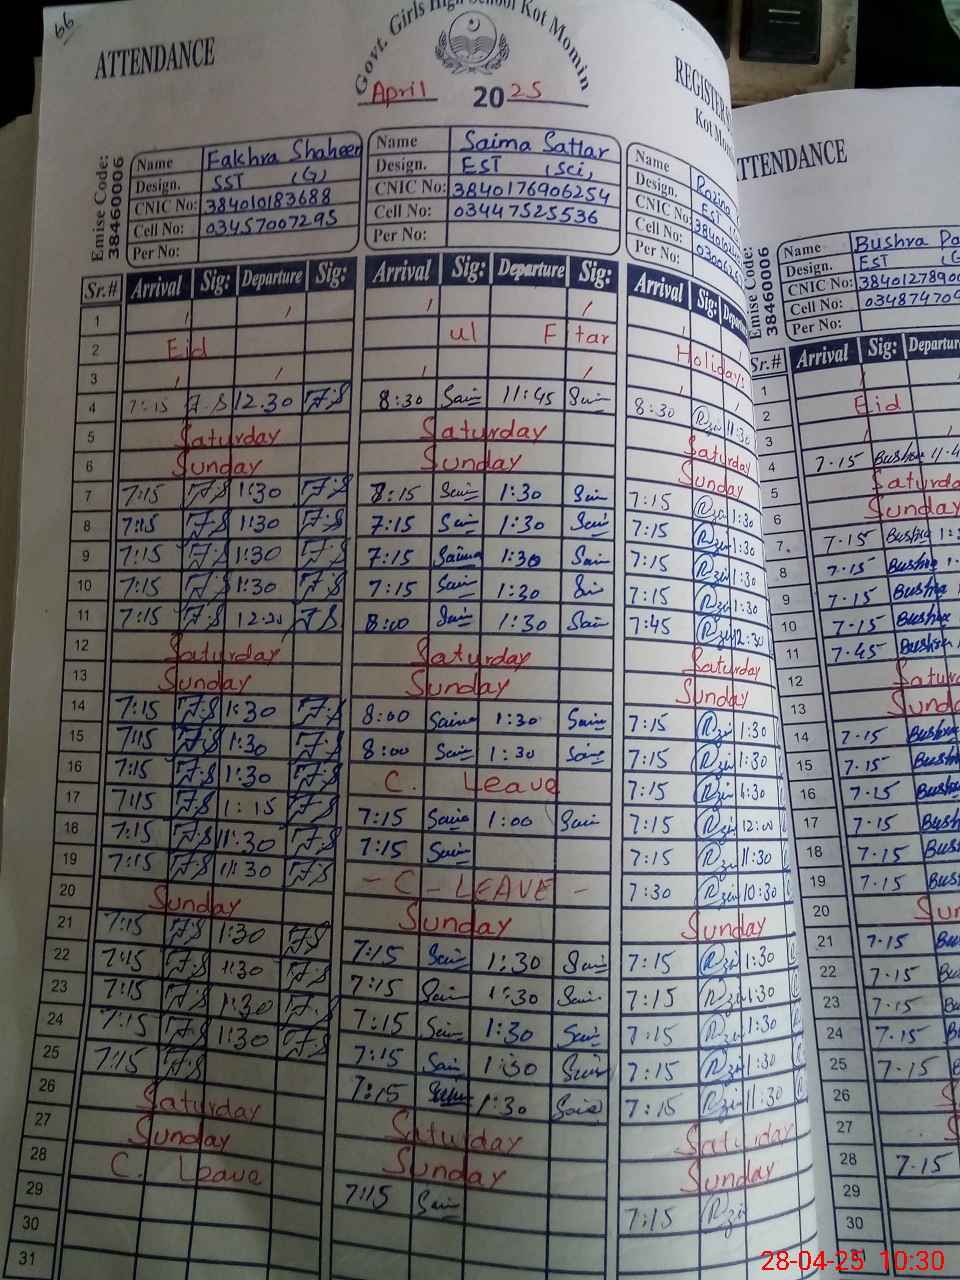 66
ATTENDANCE
Govt. Girls High School Kot Momin
April 2025
REGISTER
Kot Mom
Emise Code: 38460006
Name Fakhra Shaheen
Design. SST (G)
CNIC No: 384010183688
Cell No: 03457007295
Per No:
Name Saima Sattar
Design. EST (Sci,
CNIC No: 3840176906254
Cell No: 03447525536
Per No:
Name
Design. EST
CNIC No:
Cell No:
Per No:
TTENDANCE
Emise Code: 38460006
Name Bushra
Design. EST
CNIC No: 38401278900
Cell No: 03487470
Per No:
Sr.# Arrival Sig: Departure Sig: Arrival Sig: Departure Sig: Arrival Sig: Depart
1
2 Eid ul Fitar Holiday:
3
4 7:15 F.S 12.30 F.S 8:30 Sain 11:45 Sain 8:30 11:30
5 Saturday Saturday Saturday
6 Sunday Sunday Sunday
7 7:15 F.S 1:30 F.S 8:15 Sain 1:30 Sain 7:15 1:30
8 7:15 F.S 1:30 F.S 7:15 Sain 1:30 Sain 7:15 1:30
9 7:15 F.S 1:30 F.S 7:15 Saima 1:30 Sain 7:15 1:30
10 7:15 F.S 1:30 F.S 7:15 Sain 1:30 Sain 7:15 1:30
11 7:15 F.S F.S 8:00 Sain 1:30 Sain 7:45 12:30
12 Saturday Saturday Saturday
13 Sunday Sunday Sunday
14 7:15 F.S 1:30 F.S 8:00 Saima 1:30 Saim 7:15 1:30
15 7:15 F.S 1:30 F.S 8:00 Sain 1:30 Sain 7:15 1:30
16 7:15 F.S 1:30 F.S C. Leave 7:15 1:30
17 7:15 F.S 1:15 F.S 7:15 Saim 1:00 Sain 7:15 12:00
18 7:15 F.S 11:30 F.S 7:15 Sain 7:15 11:30
19 7:15 F.S 11:30 F.S - C - LEAVE - 7:30 10:30
20 Sunday Sunday Sunday
21 7:15 F.S 1:30 F.S 7:15 Sain 1:30 Sain 7:15 1:30
22 7:15 F.S 1:30 F.S 7:15 Sain 1:30 Sain 7:15 1:30
23 7:15 F.S 1:30 F.S 7:15 Sain 1:30 Sain 7:15 1:30
24 7:15 F.S 1:30 F.S 7:15 Sain 1:30 Sain 7:15 1:30
25 7:15 F.S 7:15 1:30 7:15 11:30
26 Saturday Saturday Saturday
27 Sunday Sunday Sunday
28 C. Leave 7:15 Sain 7:15
29
30
31
Sr.# Arrival Sig: Departure
1
2 Eid
3
4 7.15 Bushra 11.4
5 Saturda
6 Sunda
7 7.15 Bushra 1:
8 7.15 Bushra 1
9 7.15 Bushra
10 7.15 Bushra
11 7.45 Bushra
12 Satur
13 Sund
14 7.15 Bushra
15 7.15 Bushr
16 7.15 Bush
17 7.15 Bush
18 7.15 Bus
19 7.15 Bus
20 Sun
21 7.15 Bu
22 7.15 Bu
23 7.15 Bu
24 7.15 B
25 7.15 B
26 S
27 S
28 7.15
29
30
28-04-25 10:30